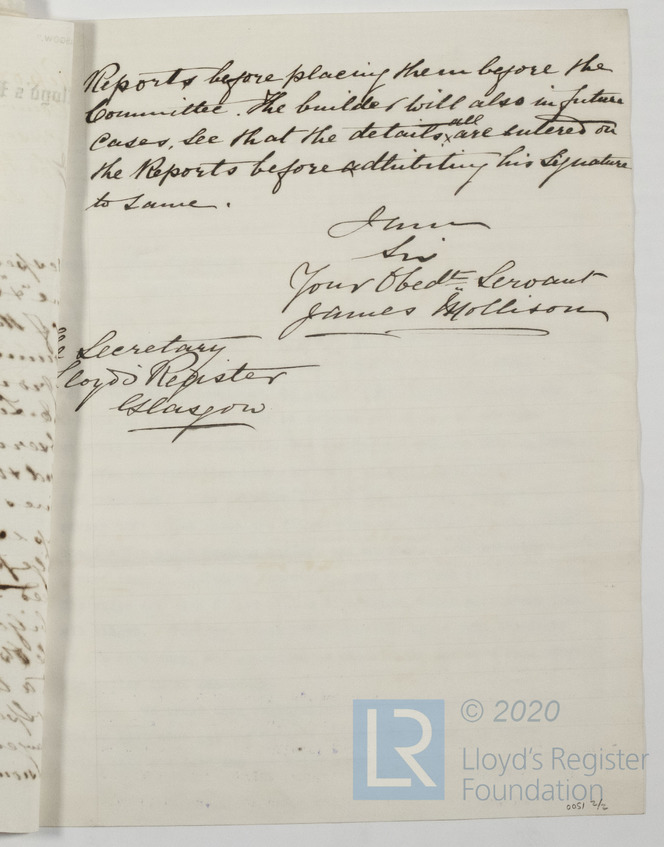 Reports before placing them before the
Committee. The builder will also in future
cases, see that the details all are entered on
the Reports before adhibiting his Signature
to same.
I am
Sir
Your Obedt. Servant
James Mollison
Secretary
Lloyd's Register
Glasgow
LR
© 2020
Lloyd's Register
Foundation
0051 2/2